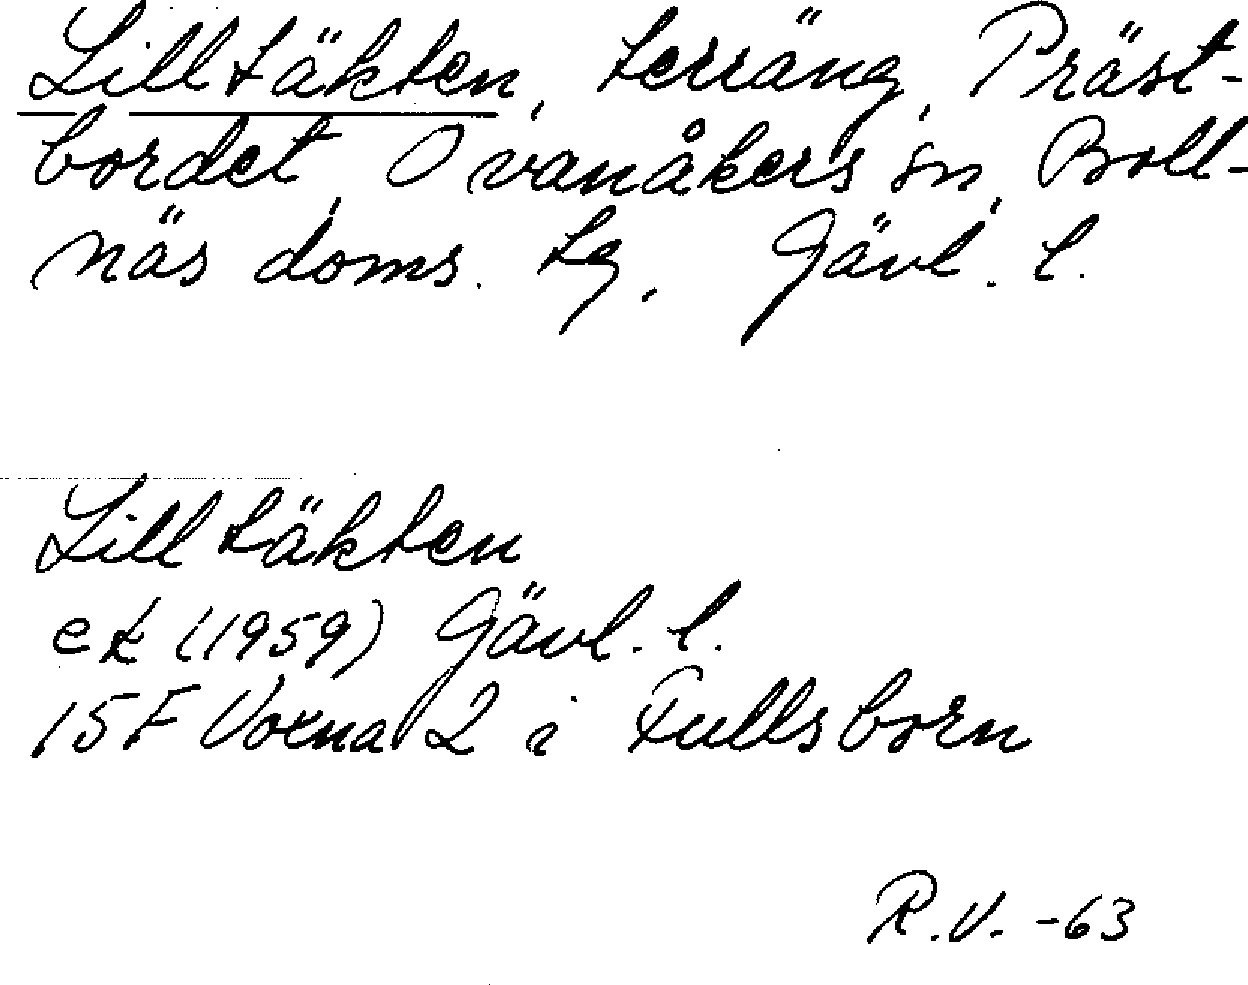 Lilltäkten, terräng, Präst-
bordet, Ovanåkers sn, Boll-
näs doms. tg, Gävl. l.
Lilltäkten
ek (1959) Gävl. l.
15F Voxna 2 i Fullsborn
R.V. -63